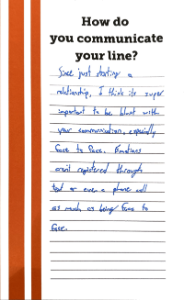 How do
you communicate
your line?
Since just starting a
relationship, I think its super
important to be blunt with
your communication, especially
face to face. Emotions
arent registered through
text or even a phone call
as much as being face to
face.